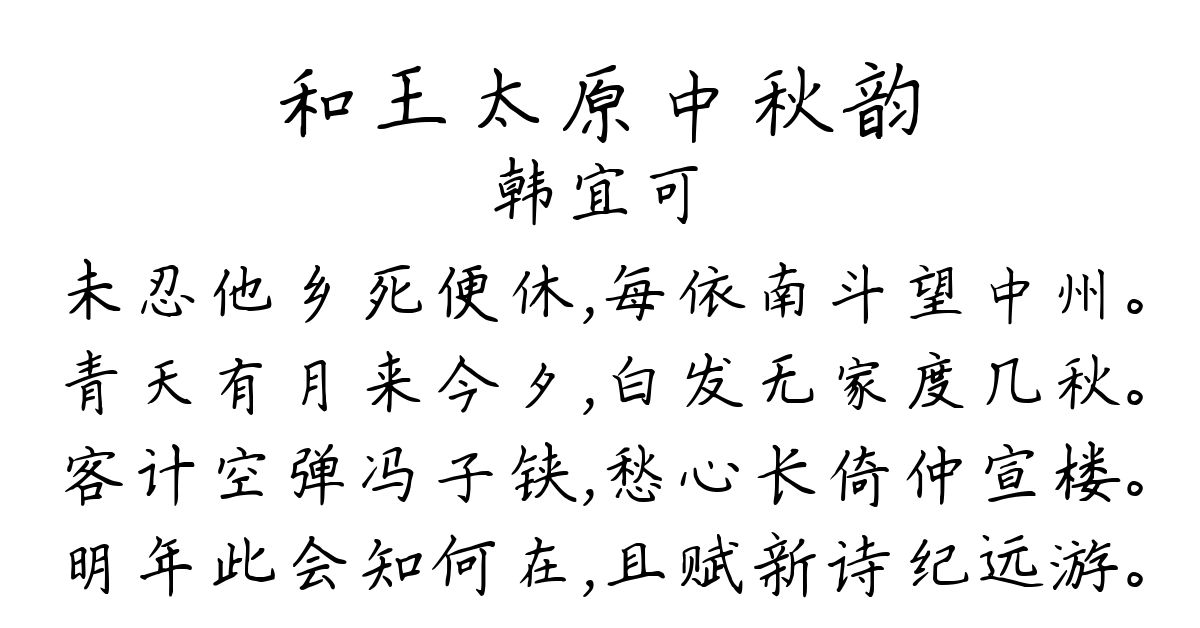 和王太原中秋韵
韩宜可
未忍他乡死便休,每依南斗望中州。
青天有月来今夕,白发无家度几秋。
客计空弹冯子铗,愁心长倚仲宣楼。
明年此会知何在,且赋新诗纪远游。